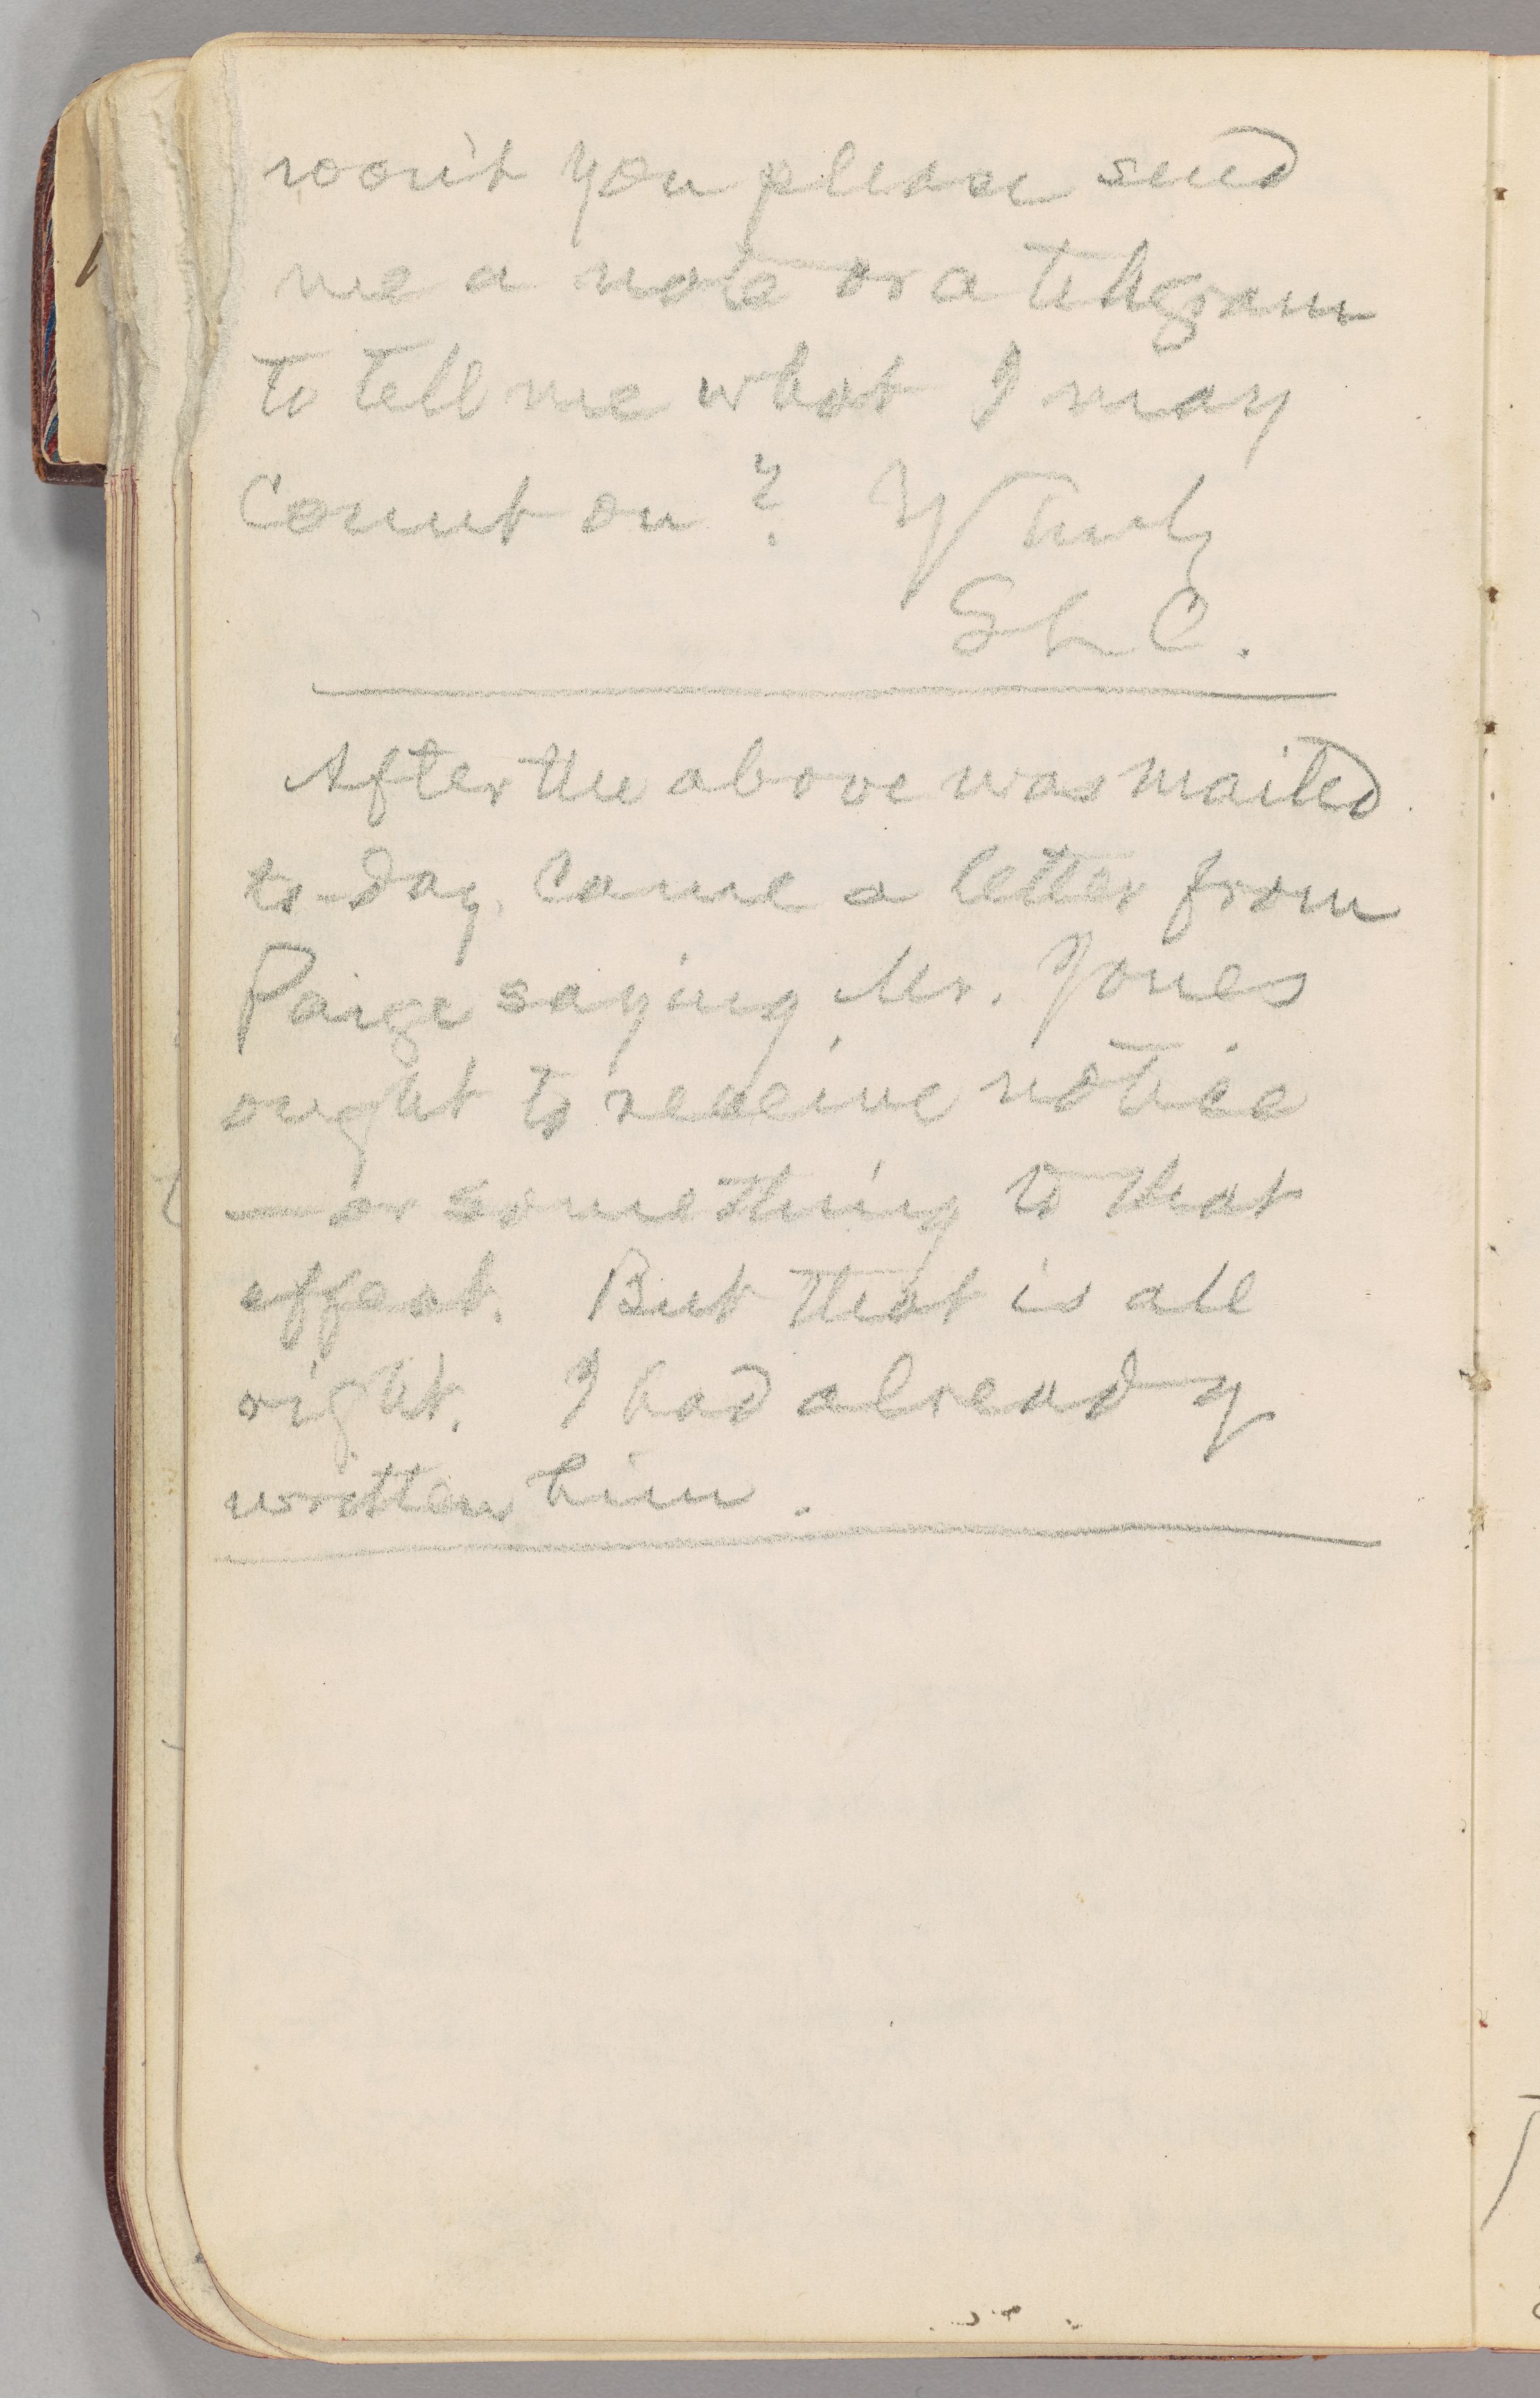 won't you please send
me a note or a telegram
to tell me what I may
count on? Y Truly
SLC.
After the above was mailed
to-day, came a letter from
Paige saying Mr. Jones
ought to receive notice
—or something to that
effect. But that is all
right. I had already
written him.